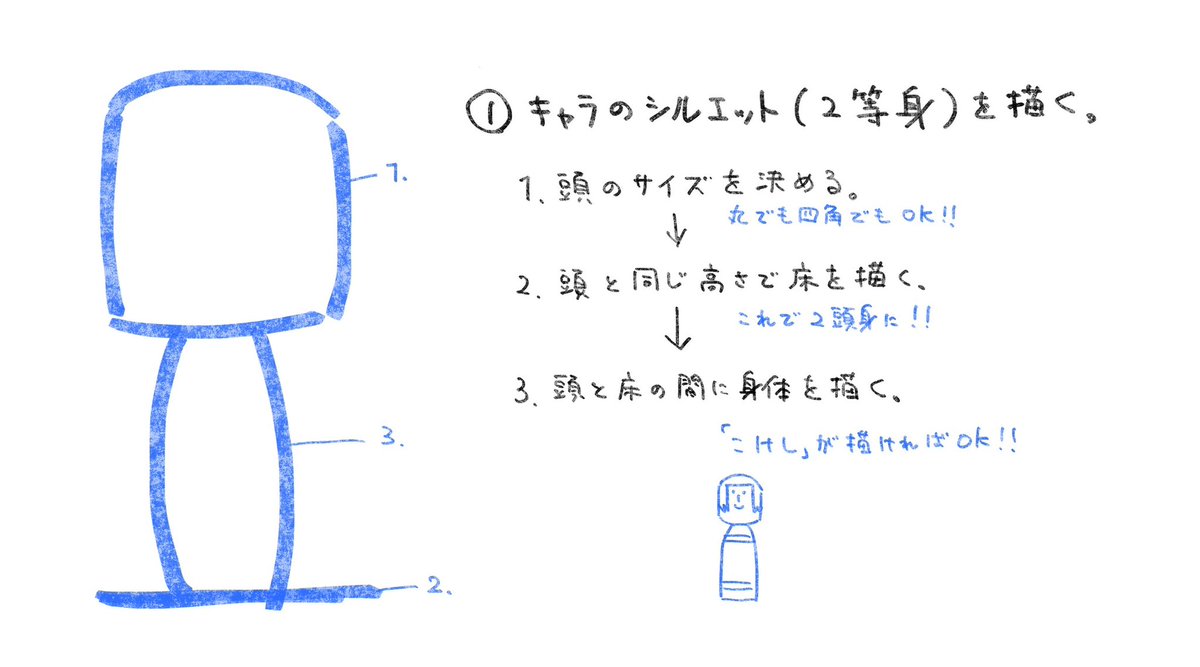 ① キャラのシルエット(2等身)を描く。
1. 頭のサイズを決める。
丸でも四角でもOK!!
↓
2. 頭と同じ高さで床を描く、
これで2頭身に!!
↓
3. 頭と床の間に身体を描く。
「こけし」が描ければOK!!
1.
3.
2.